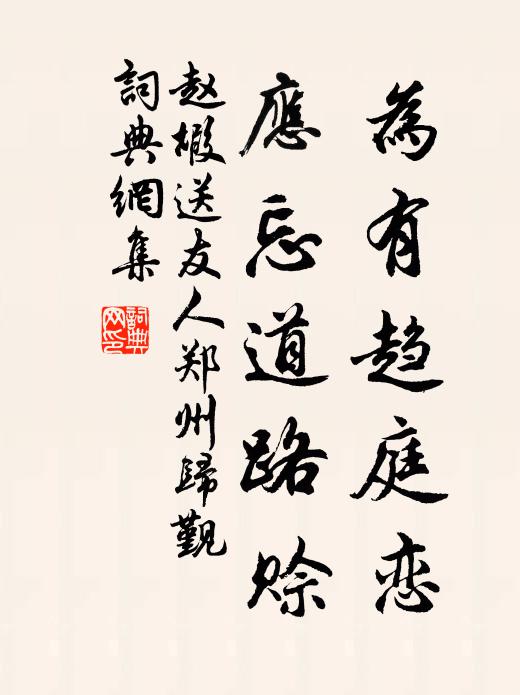 為有趋庭恋
應忘道路赊
赵嘏送友人郑州歸觐
詞典網集
詞典网印